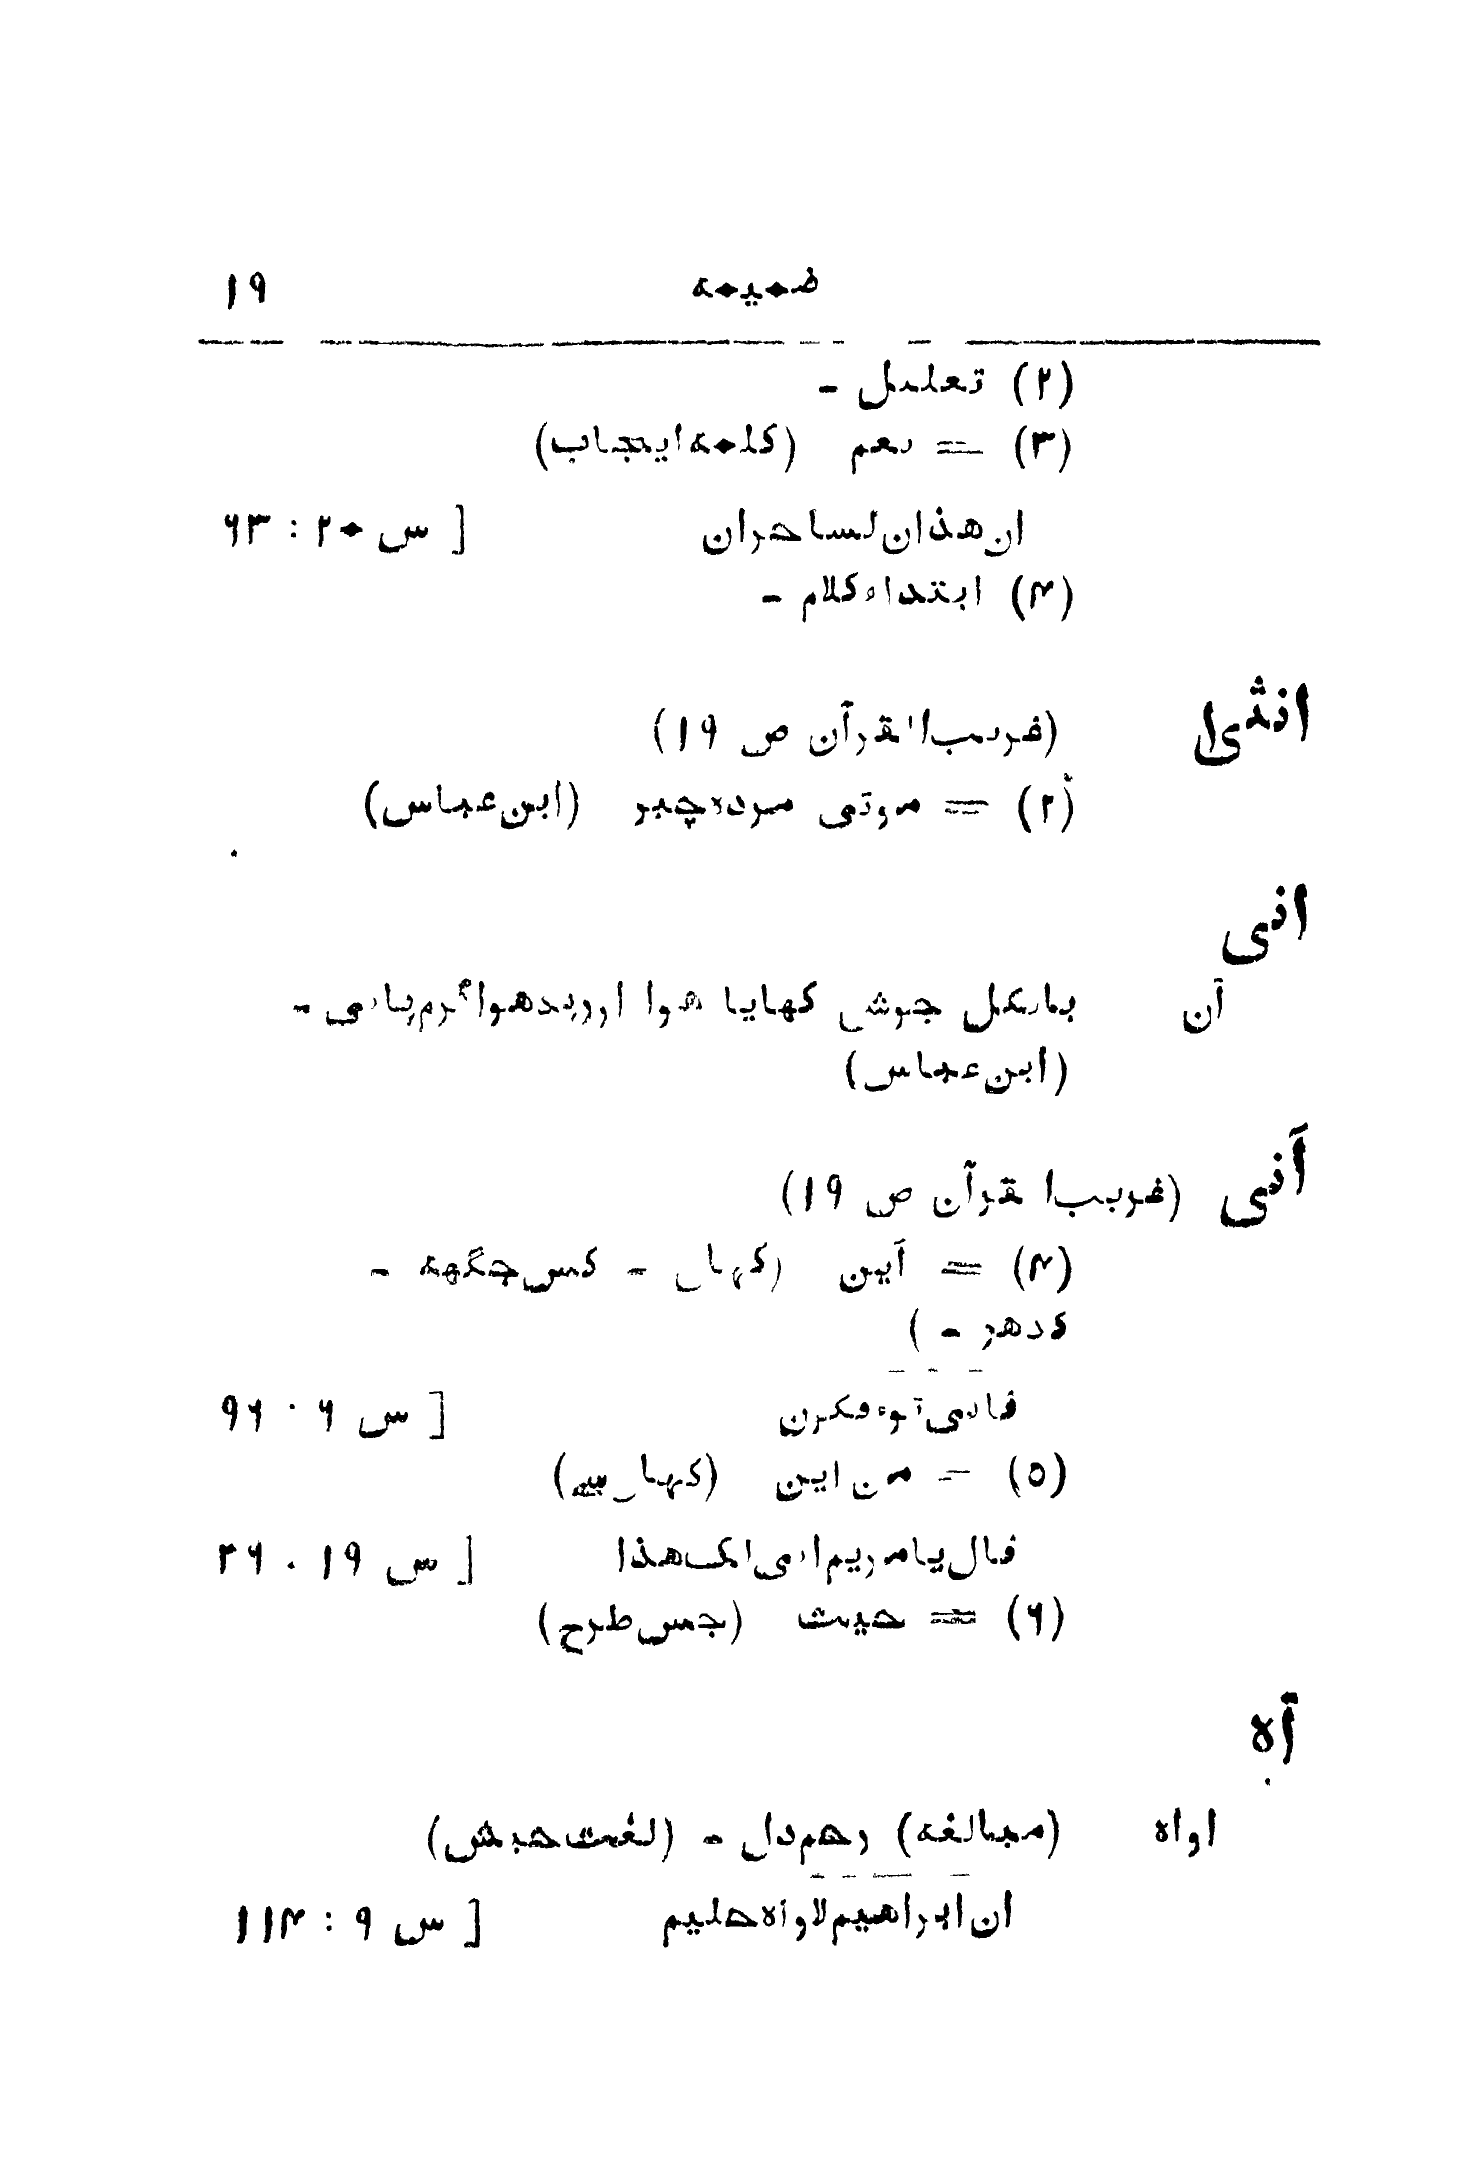 ضمیمه ۱۹
(۲) تعلیل -
(۳) = نعم (کلمه ایجاب)
ان هذان لساحران [ س ۲۰ : ۶۳
(۴) ابتداء کلام -
انثی
(غریب القرآن ص ۱۹)
(۲) = موتی مرده چیز (ابن عباس)
انی
آن بالکل جوش کهایا هوا اور بدهوا گرم پانی -
(ابن عباس)
آنی (غریب القرآن ص ۱۹)
(۴) = آین (کہاں - کس جگهه -
کدهر - )
فانی تؤفکون [ س ۶ : ۹۶
(۵) = من این (کہاں سے)
قال یا مریم انی لک هذا [ س ۱۹ . ۳۶
(۶) = حیث (جس طرح)
آه
اواه (مبالغه) رحم دل - (لغت حبش)
ان ابراهیم لاواه حلیم [ س ۹ : ۱۱۴